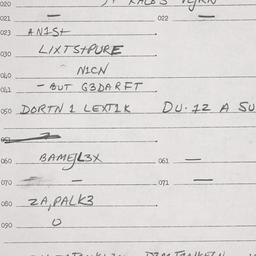 020
021 — 022 —
023 AN1St
LIXTStPURE
030
N1CN
040
041 - BUT G3DARFT
050 DORTN 1 LEXT1K DU. 12 A SU
060 BAMEJL3X 061 —
070 — 071 —
080 ZA,PALK3
090 O